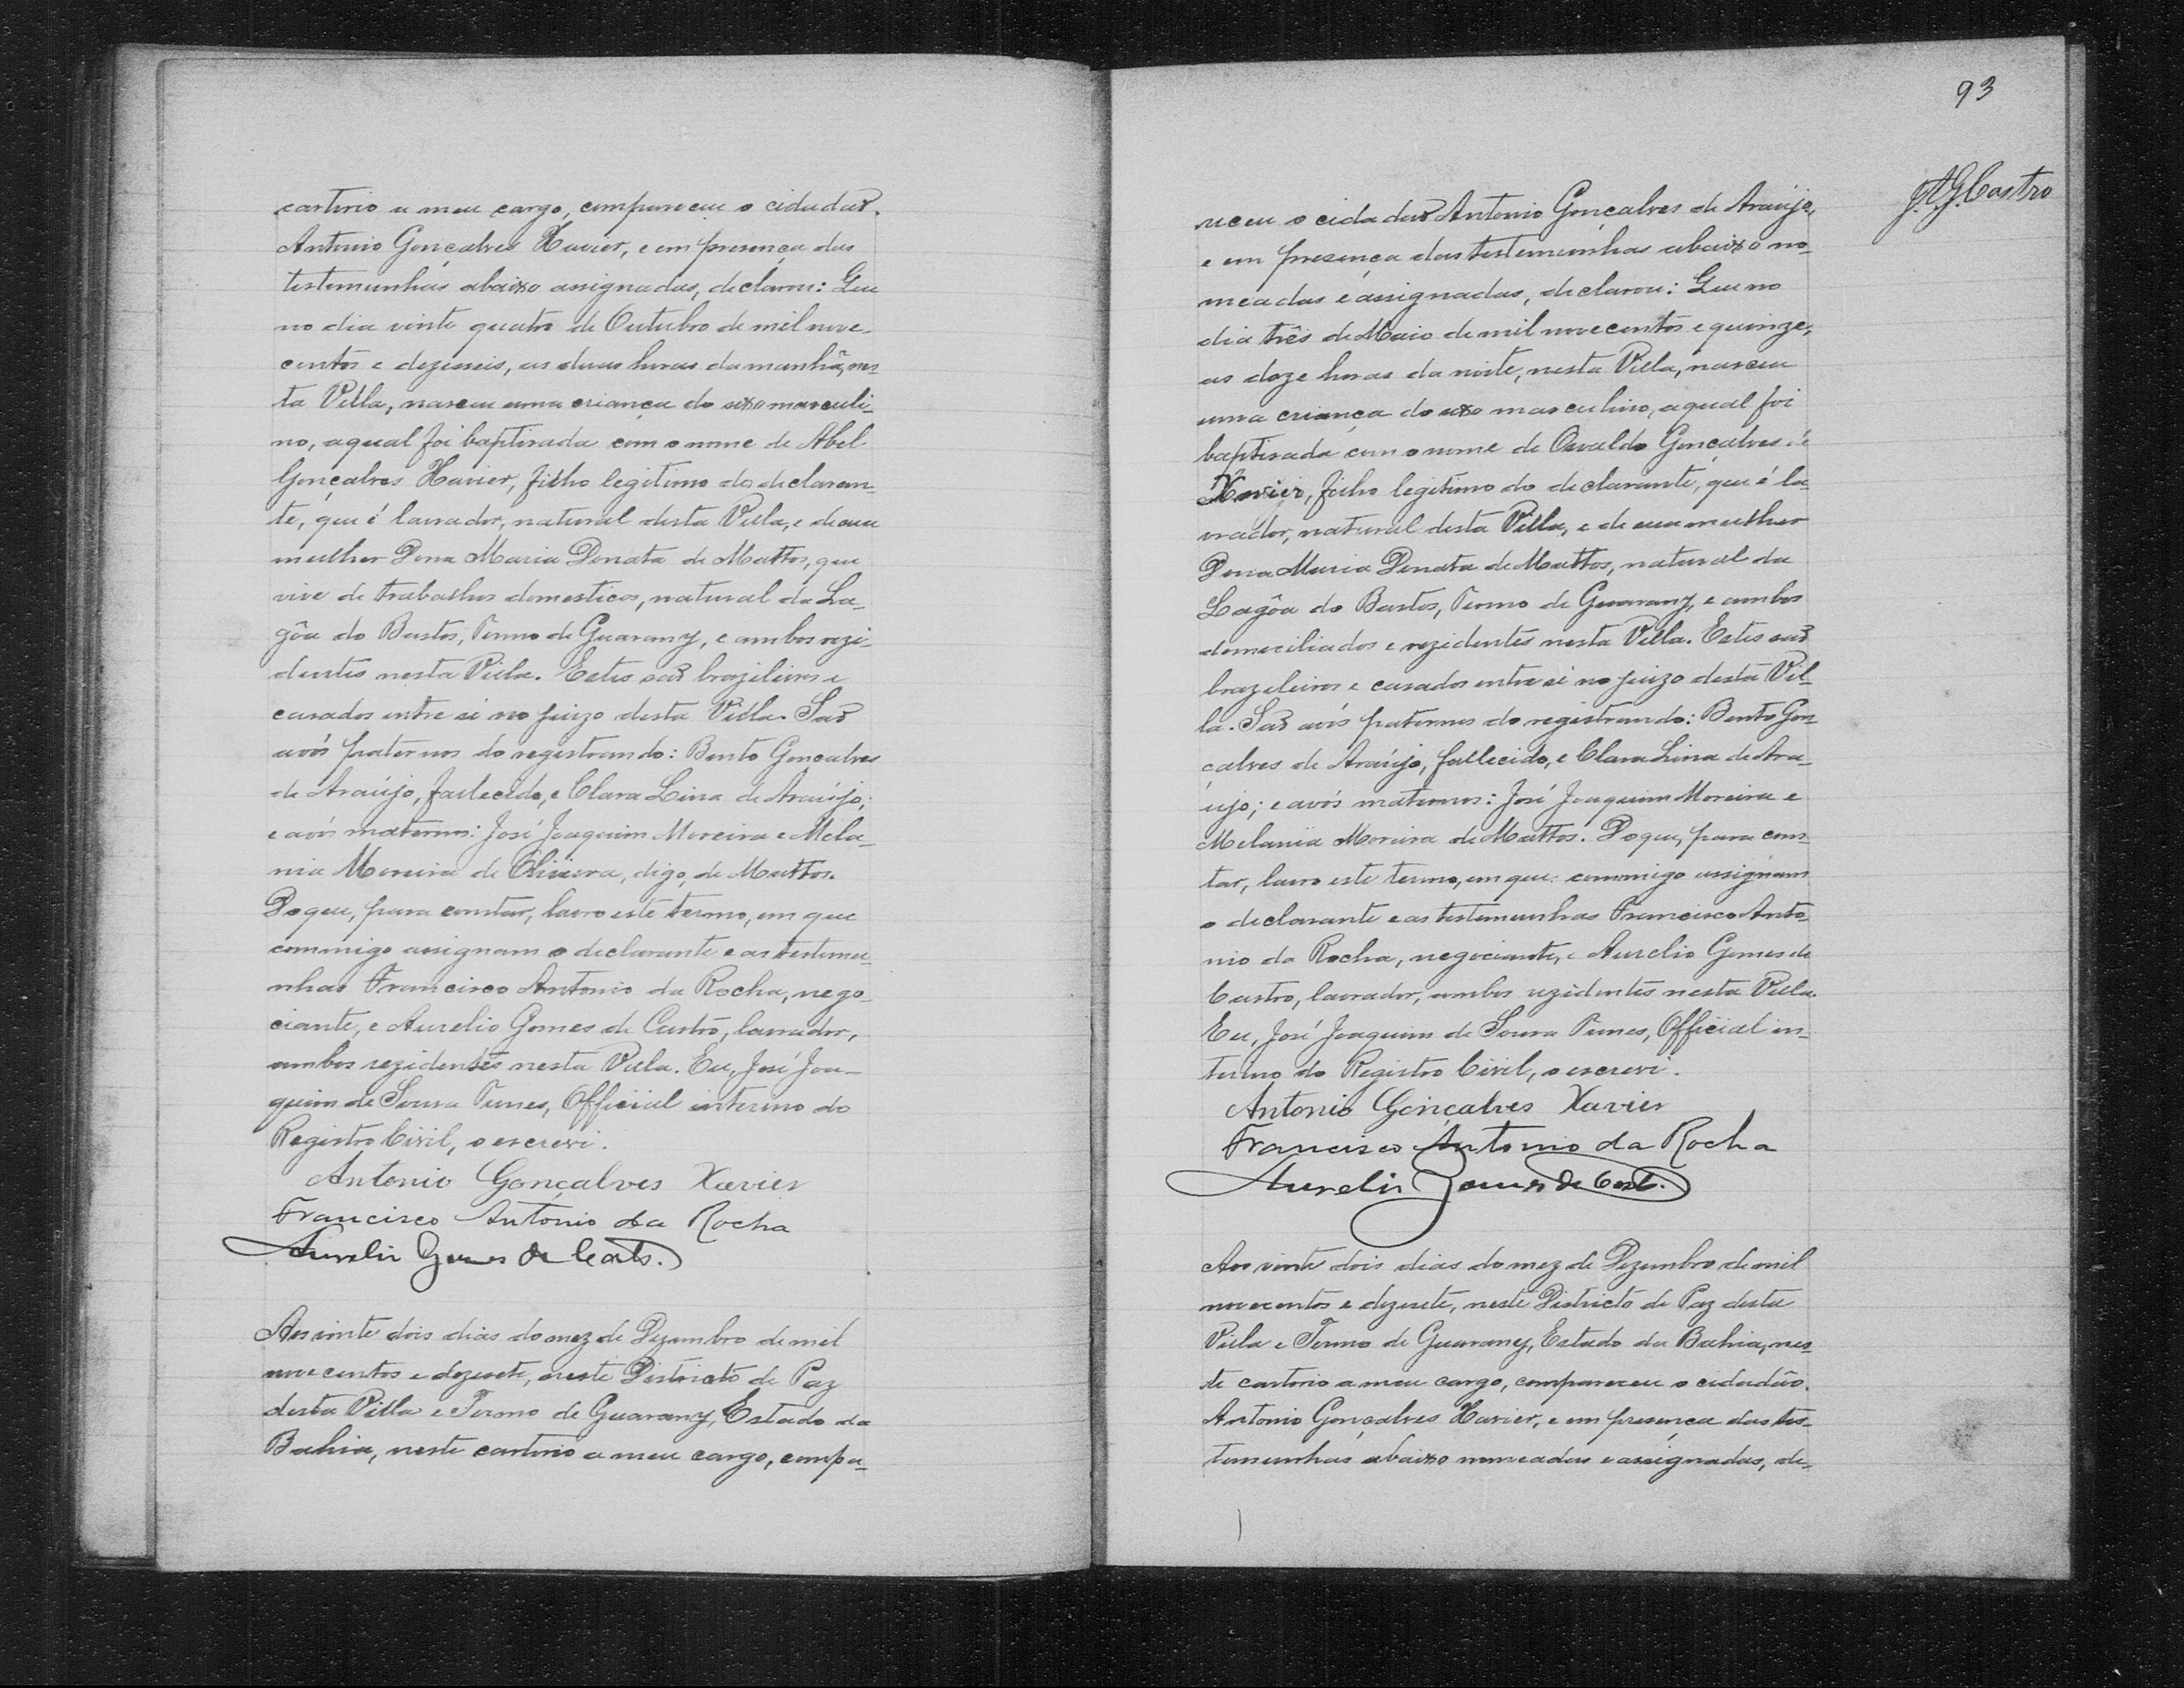 cartorio a meu cargo, compareceu o cidadão.
Antonio Gonçalves Xavier, e em presença das
testemunhas abaixo assignadas, declarou: Que
no dia vinte quatro de Outubro de mil nove-
centos e dezesseis, as duas horas da manhã, nes-
ta Villa, nasceu uma criança do sexo masculi-
no, a qual foi baptisada com o nome de Abel
Gonçalves Xavier, filho legitimo do declaran-
te, que é lavrador, natural desta Villa, e de sua
mulher Dona Maria Donata de Mattos, que
vive de trabalhos domesticos, natural da La-
gôa do Bastos, Termo de Guarany, e ambos rezi-
dentes nesta Villa. Estes são brazileiros e
casados entre si no juizo desta Villa. São
avós paternos do registrando: Bento Gonçalves
de Araújo, fallecido, e Clara Lina de Araújo;
e avós maternos: José Joaquim Moreira e Mela-
nia Moreira de Oliveira, digo, de Mattos.
Do que, para constar, lavro este termo, em que
commigo assignam o declarante e as testemu-
nhas Francisco Antonio da Rocha, nego-
ciante, e Aurelio Gomes de Castro, lavrador,
ambos rezidentes nesta Villa. Eu, José Joa-
quim de Sousa Tunes, Official interino do
Registro Civil, o escrevi.
Antonio Gonçalves Xavier
Francisco Antonio da Rocha
Aurelio Gomes de Casto.
Aos vinte dois dias do mez de Dezembro de mil
novecentos e dezesete, neste Districto de Paz
desta Villa e Termo de Guarany, Estado da
Bahia, neste cartorio a meu cargo, compa-
93
J.A.G.Castro
receu o cidadão Antonio Gonçalves de Araújo,
e em presença das testemunhas abaixo no-
meadas e assignadas, declarou: Que no
dia três de Maio de mil novecentos e quinze,
as doze horas da noite, nesta Villa, nasceu
uma criança do sexo masculino, a qual foi
baptisada com o nome de Osvaldo Gonçalves de
Xavier, filho legitimo do declarante, que é la-
vrador, natural desta Villa, e de sua mulher
Dona Maria Donata de Mattos, natural da
Lagôa do Bastos, Termo de Guarany, e ambos
domiciliados e rezidentes nesta Villa. Estes são
brazileiros e casados entre si no juizo desta Vil-
la. São avós paternos do registrando: Bento Gon-
çalves de Araújo, fallecido, e Clara Lina de Ara-
ujo; e avós maternos: José Joaquim Moreira e
Melania Moreira de Mattos. Do que, para cons-
tar, lavro este termo, em que commigo assignam
o declarante e as testemunhas Francisco Anto-
nio da Rocha, negociante, e Aurelio Gomes de
Castro, lavrador, ambos rezidentes nesta Villa.
Eu, José Joaquim de Sousa Tunes, Official in-
terino do Registro Civil, o escrevi.
Antonio Gonçalves Xavier
Francisco Antonio da Rocha
Aurelio Gomes de Casto.
Aos vinte dois dias do mez de Dezembro de mil
novecentos e dezesete, neste Districto de Paz desta
Villa e Termo de Guarany, Estado da Bahia, nes-
te cartorio a meu cargo, compareceu o cidadão.
Antonio Gonçalves Xavier, e em presença das tes-
temunhas abaixo nomeadas e assignadas, de-